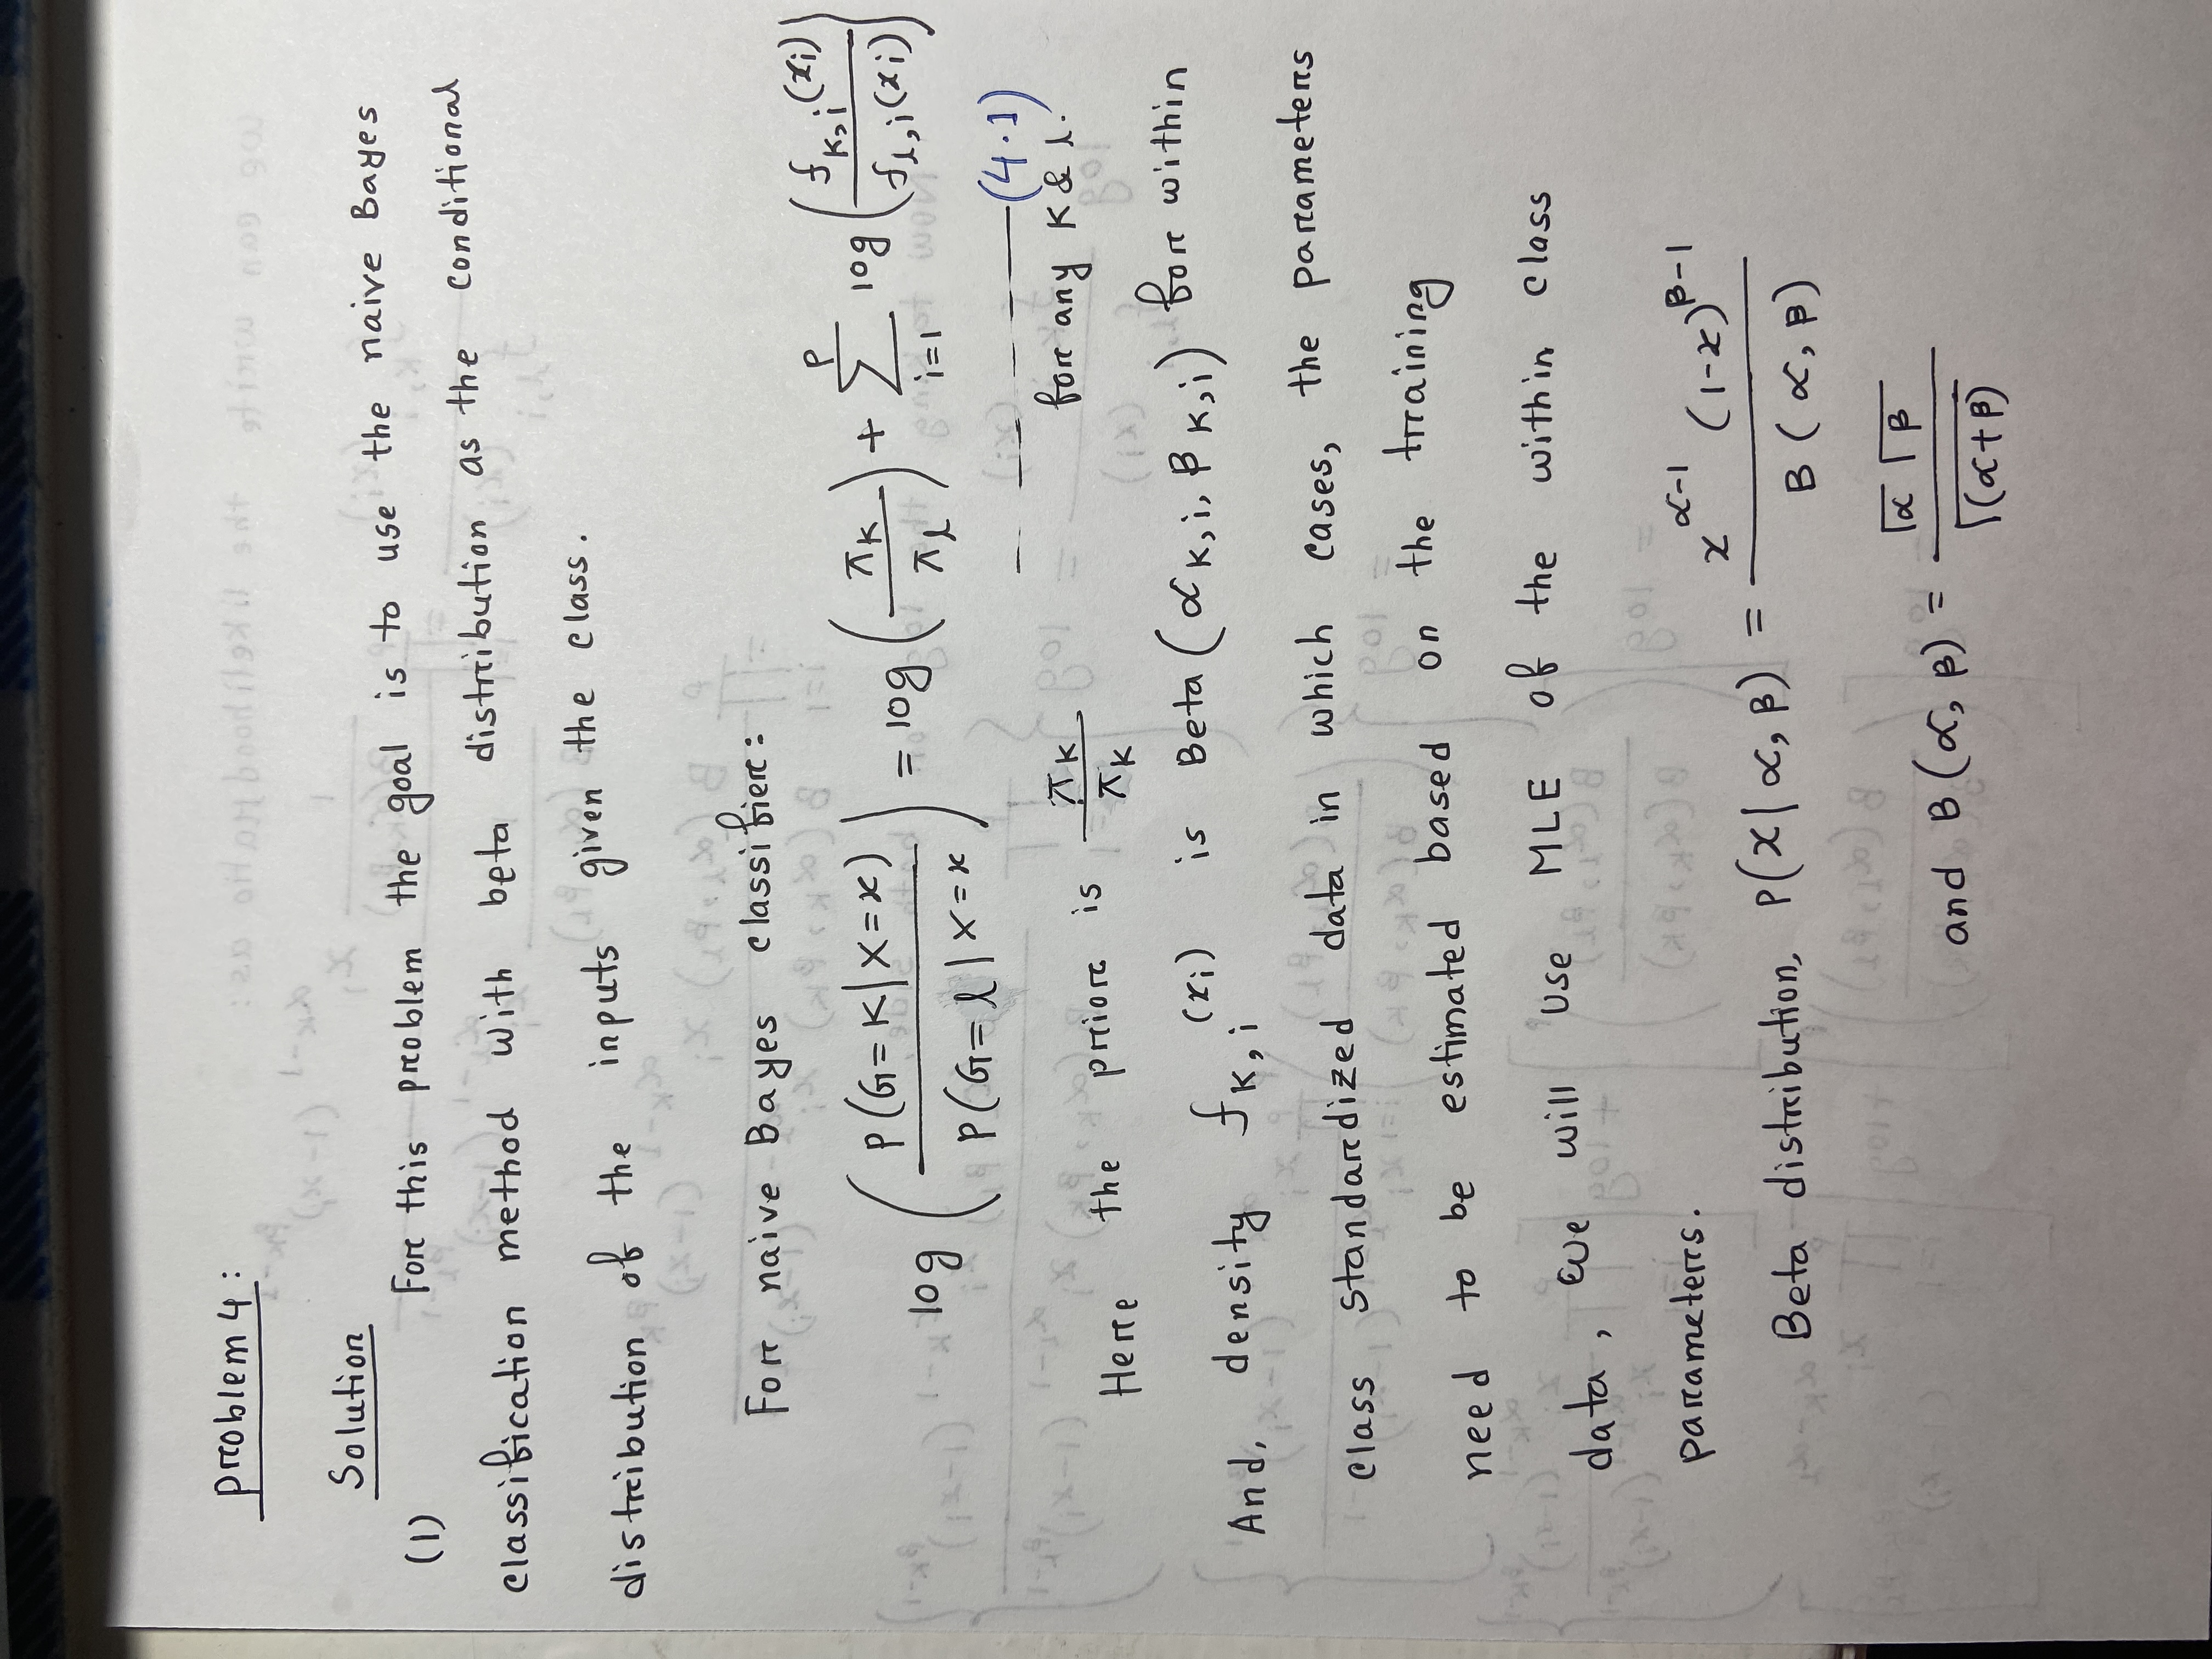 problem 4:
Solution
(1) For this problem the goal is to use the naive Bayes
classification method with beta distribution as the conditional
distribution of the inputs given the class.
For naive Bayes classifier:
log ( P(G=K|X=x) / P(G=l|X=x ) = log ( πK / πl ) + Σ_{i=1}^{P} log ( f_{K,i}(xi) / f_{l,i}(xi) )
— — — — (4.1)
for any K & l.
Here the prior is πK / πK
And, density f_{K,i}(xi) is Beta (α_{K,i}, β_{K,i}) for within
class standardized data in which cases, the parameters
need to be estimated based on the training
data, we will use MLE of the within class
parameters.
Beta distribution, P(x|α, β) = x^{α-1} (1-x)^{β-1} / B(α, β)
and B(α, β) = Γα Γβ / Γ(α+β)